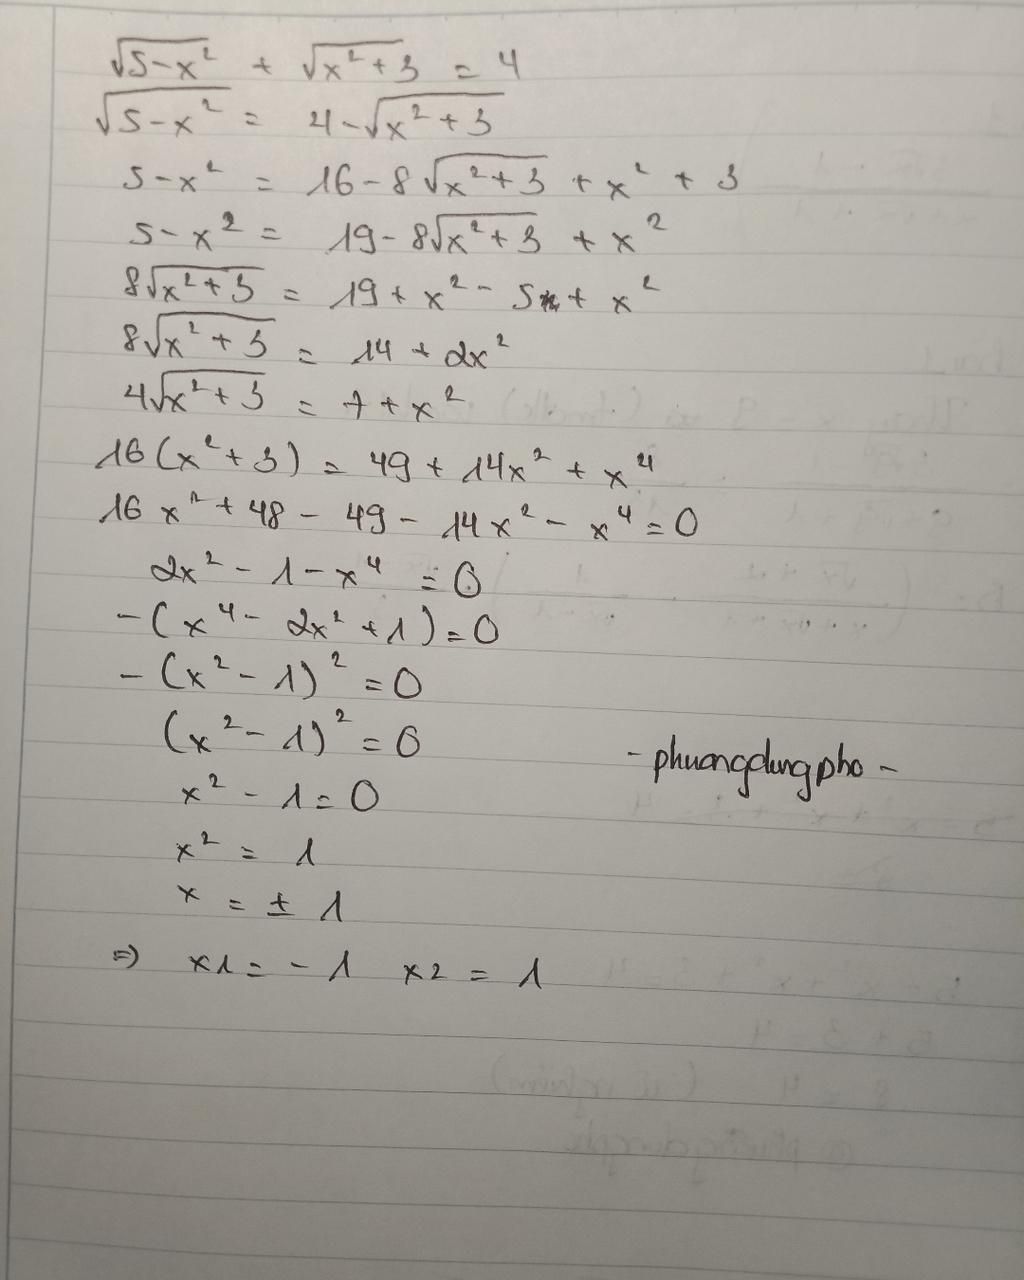 √5-x² + √x²+3 = 4
√5-x² = 4-√x²+3
5-x² = 16-8√x²+3 + x² + 3
5-x² = 19-8√x²+3 + x²
8√x²+3 = 19+x²-5+x²
8√x²+3 = 14+2x²
4√x²+3 = 7+x²
16(x²+3) = 49+14x²+x⁴
16x²+48-49-14x²-x⁴=0
2x²-1-x⁴=0
-(x⁴-2x²+1)=0
-(x²-1)²=0
(x²-1)²=0
- phuongdungpho -
x²-1=0
x² = 1
x = ± 1
=> x1=-1 x2 = 1